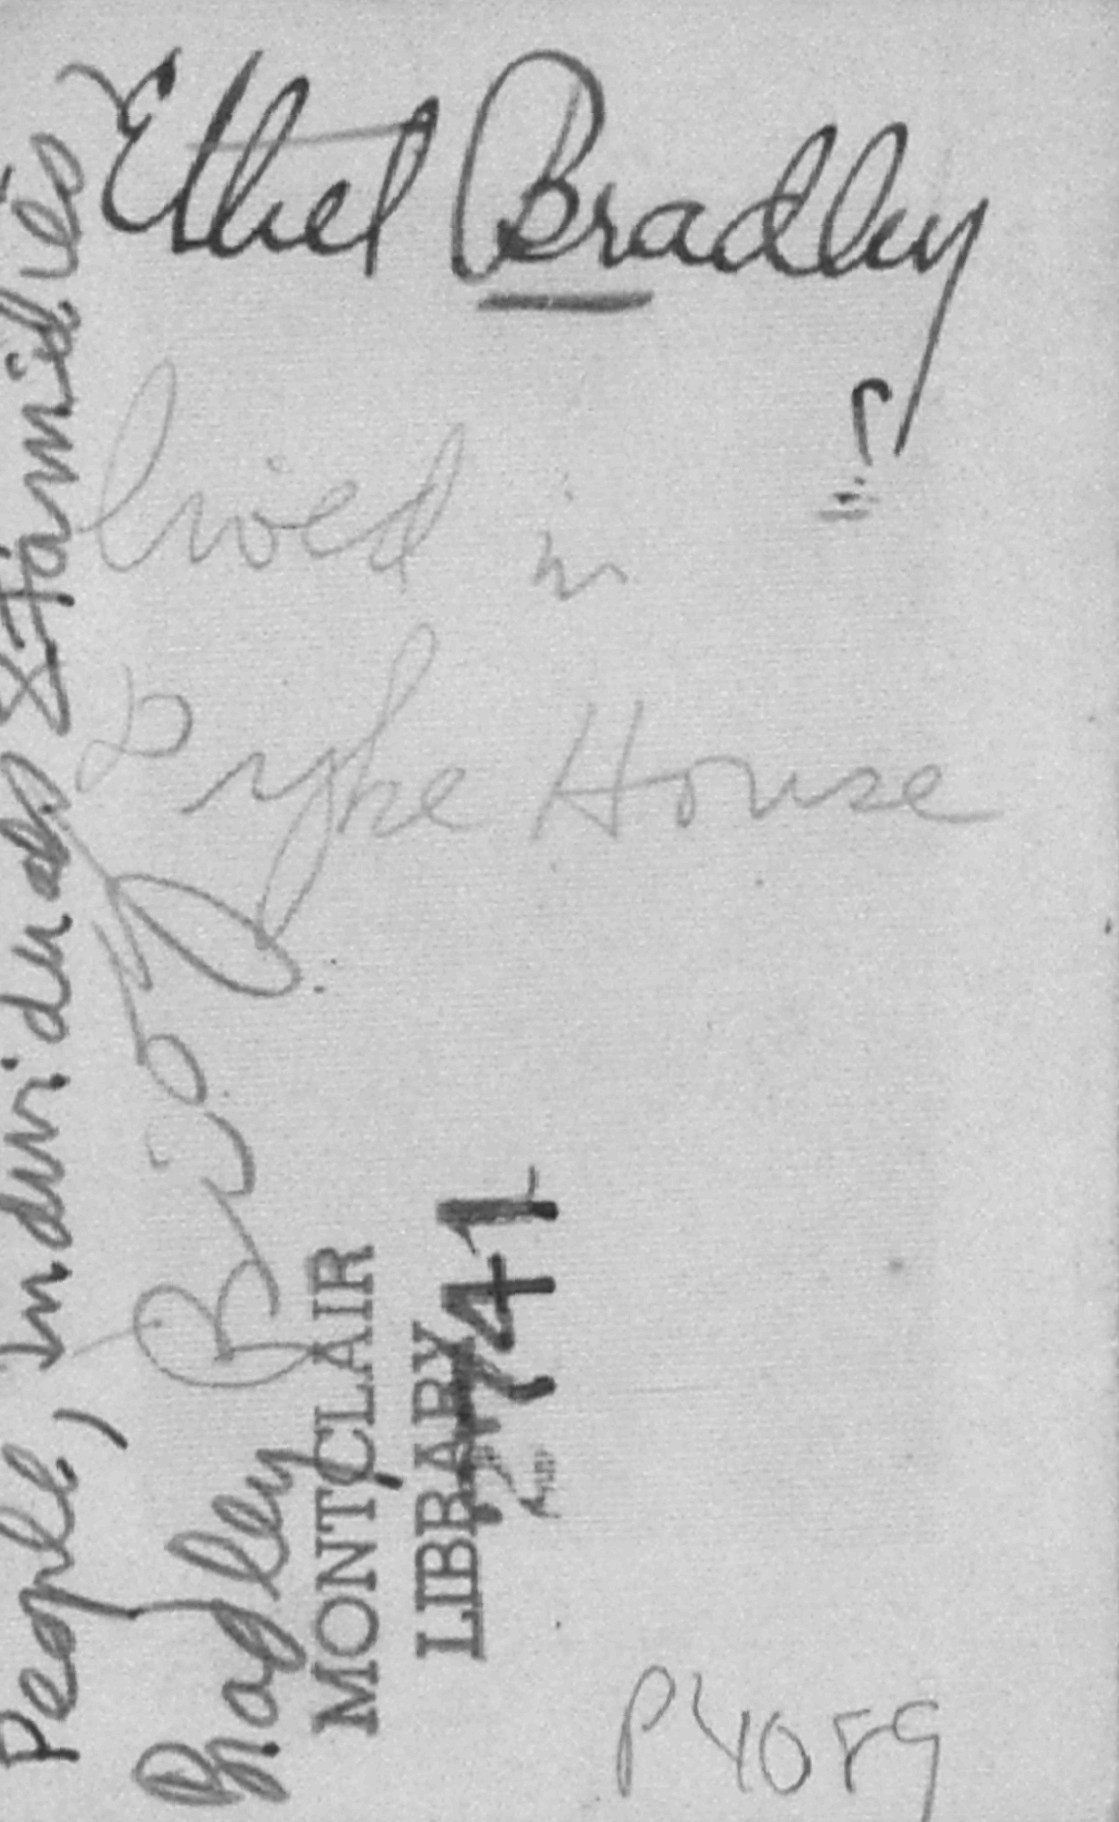 Ethel Bradley
lived in
Pyke House
People, Individuals & Families
Bradley
Biog
MONTCLAIR
LIBRARY
741
P4089